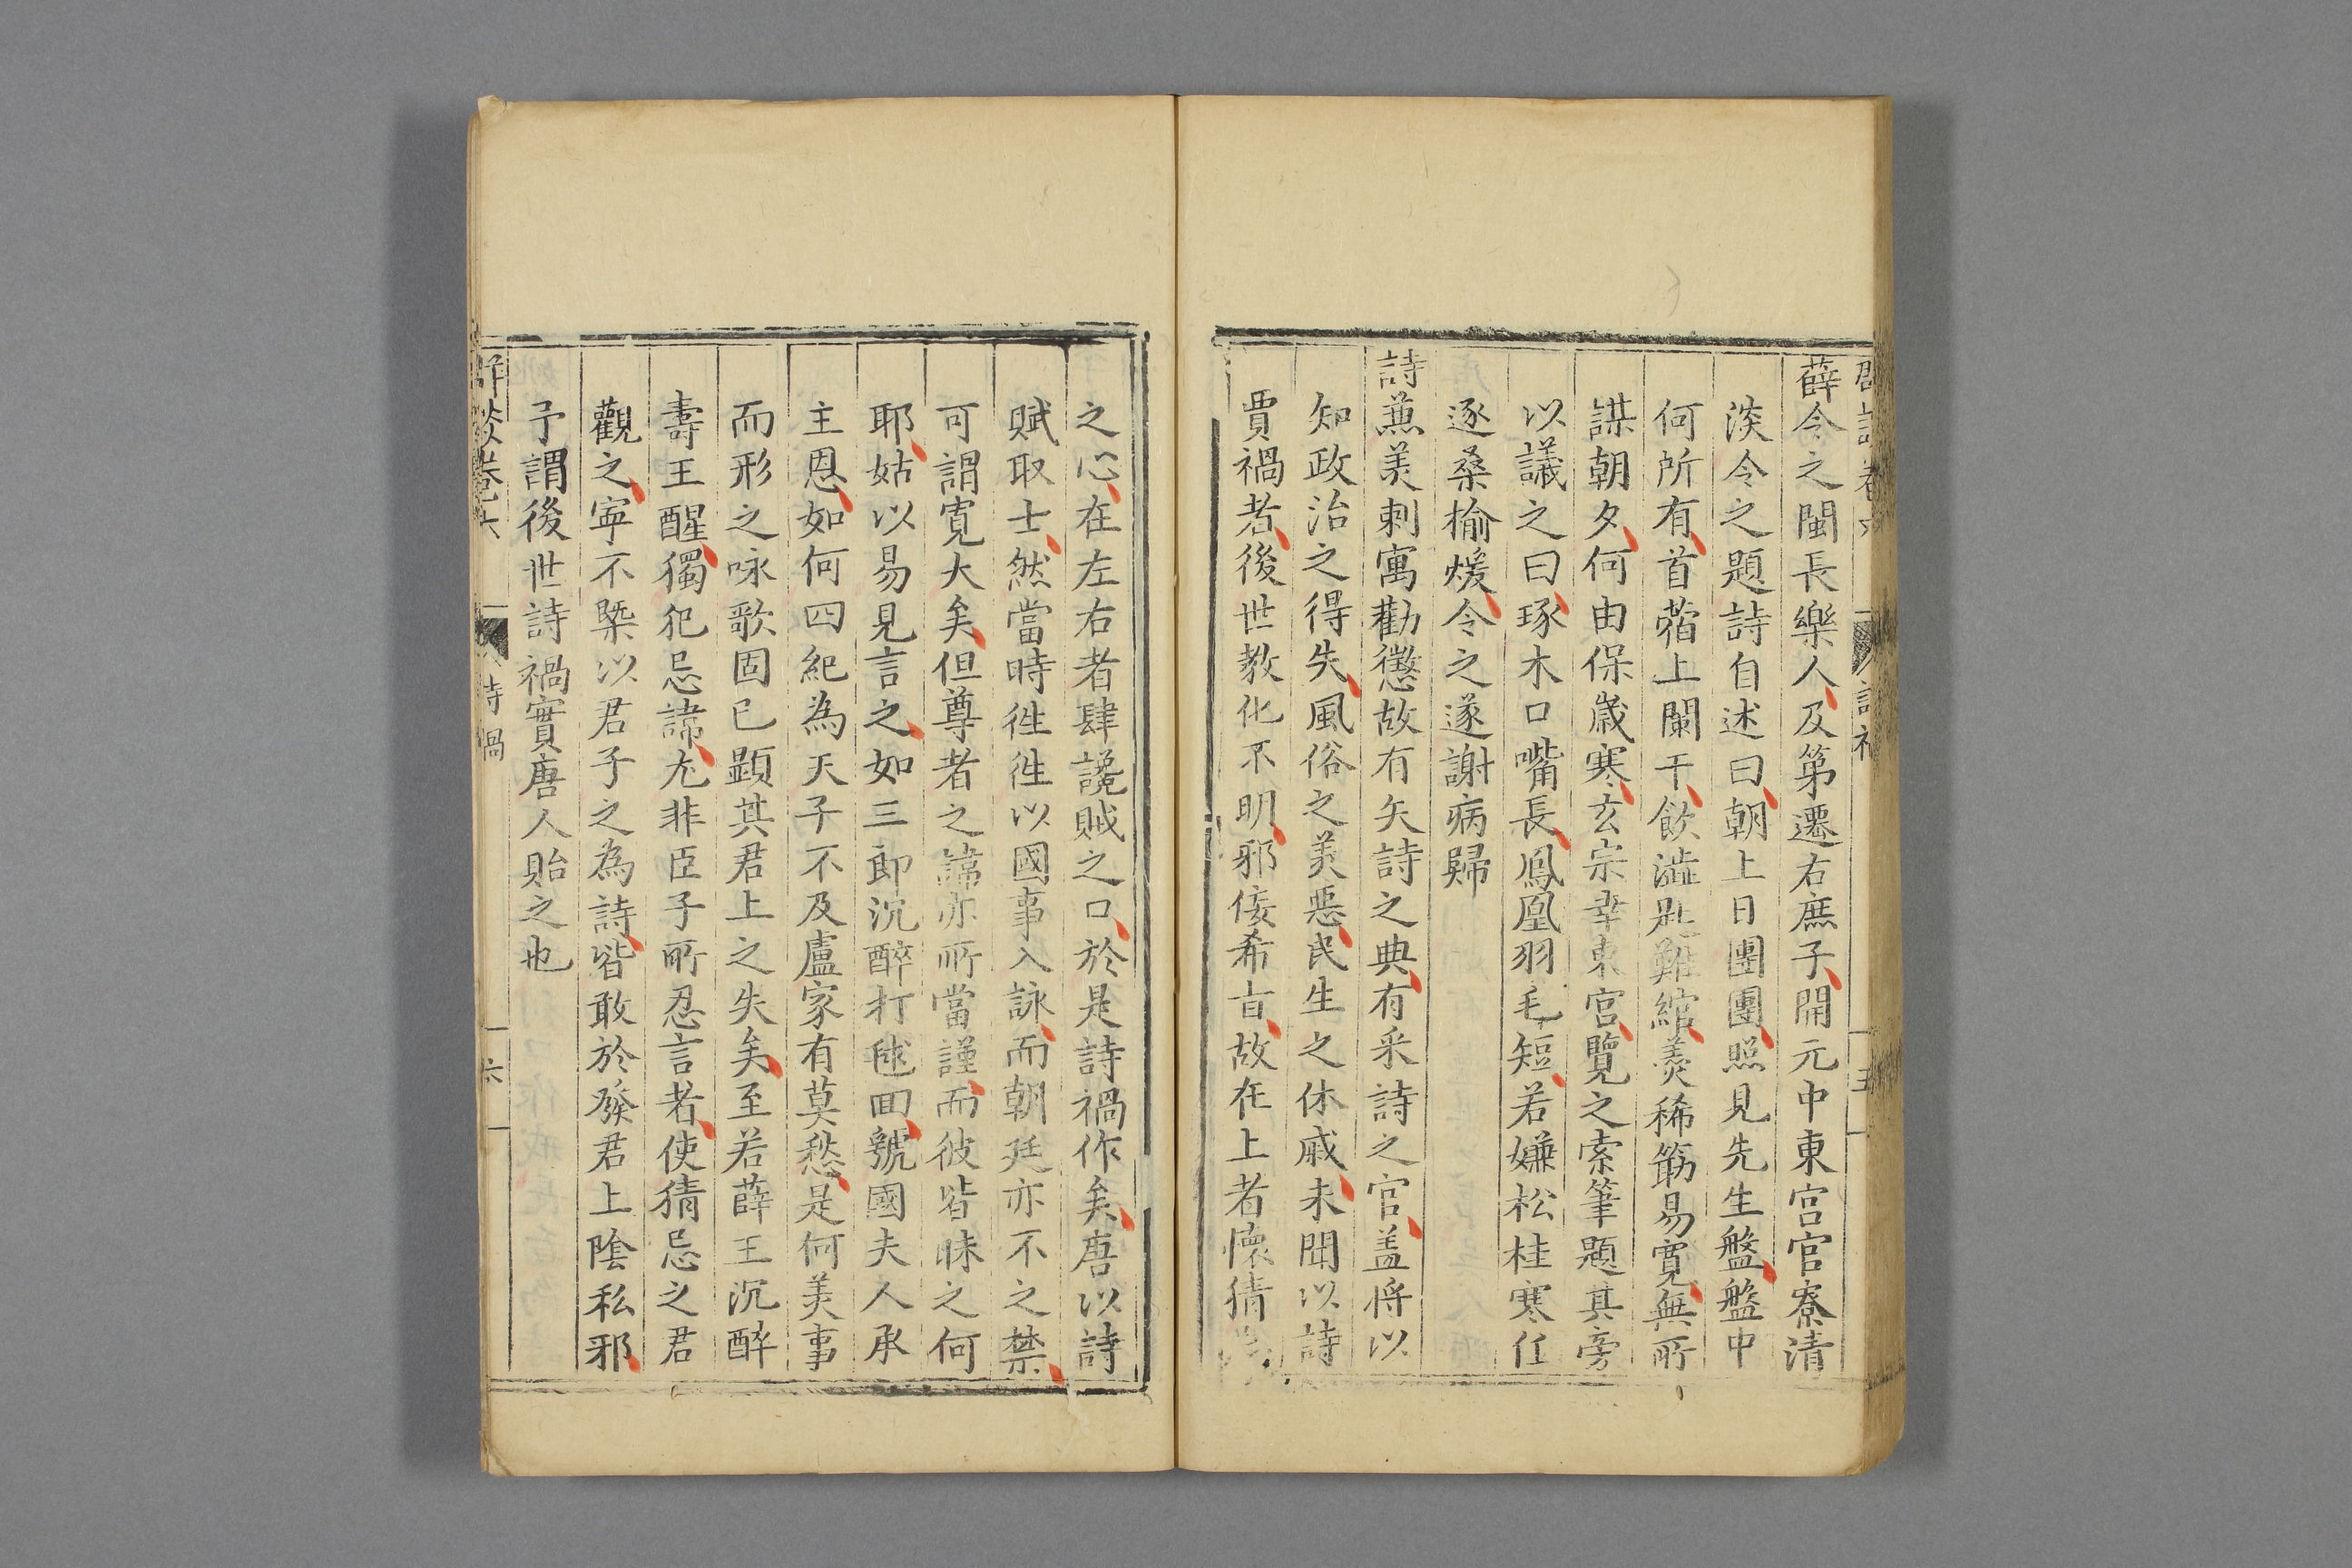 薛令之閩長樂人及第遷右庶子開元中東宫官寮清
淡令之題詩自述曰朝上日團團照見先生盤盤中
何所有苜蓿上闌干飲澁匙難綰羹稀筯易寬無所
謀朝夕何由保歲寒玄宗幸東宫覽之索筆題其旁
以議之曰琢木口嘴長鳳凰羽毛短若嫌松桂寒任
逐桑榆煖令之遂謝病歸
詩兼美刺寓勸懲故有矢詩之典有采詩之官盖將以
知政治之得失風俗之美惡民生之休戚未聞以詩
賈禍者後世教化不明邪佞希㫖故在上者懷猜
之心在左右者肆讒賊之口於是詩禍作矣唐以詩
賦取士然當時徃徃以國事入詠而朝廷亦不之禁
可謂寛大矣但尊者之諱亦所當謹而彼皆昧之何
耶姑以易見言之如三郎沉醉打毬回虢國夫人承
主恩如何四紀為天子不及盧家有莫愁是何美事
而形之咏歌固已顕其君上之失矣至若薛王沉醉
壽王醒獨犯忌諱尤非臣子所忍言者使猜忌之君
觀之寕不槩以君子之為詩皆敢於發君上隂私邪
予謂後世詩禍實唐人貽之也
詩禍
六